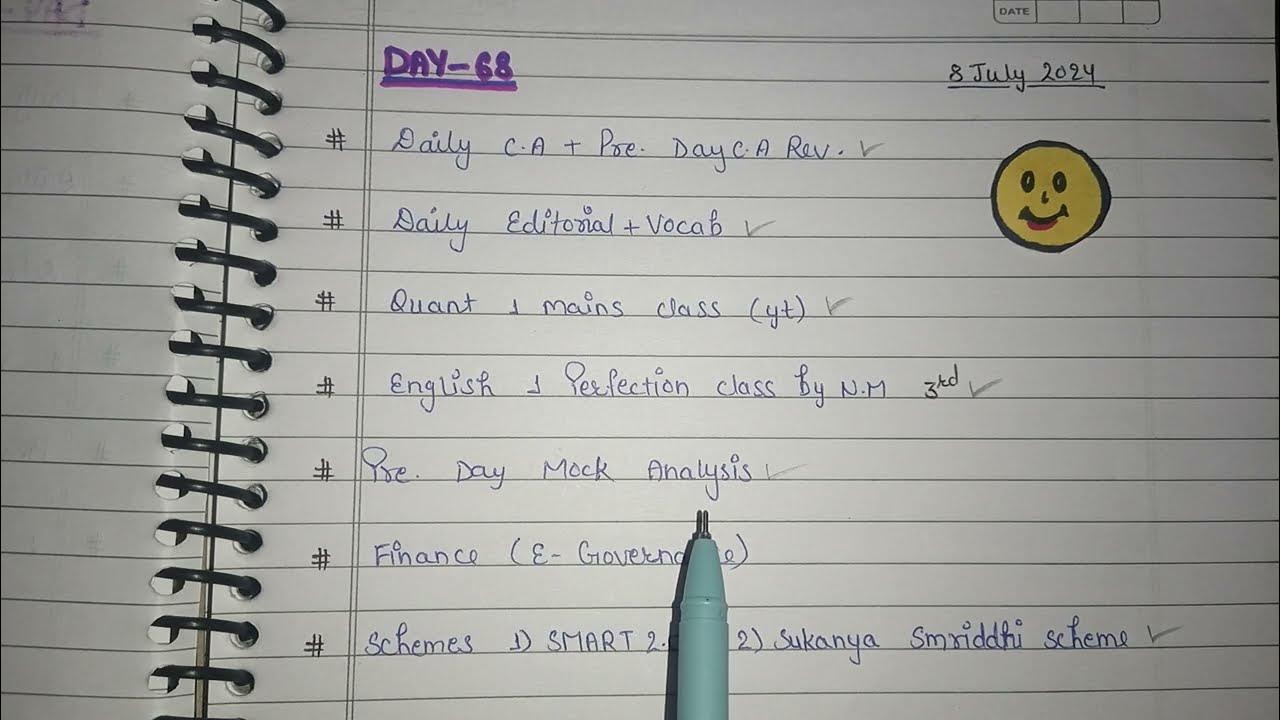 DATE
DAY-68
8 July 2024
# Daily C.A + Pre. Day C.A Rev. ✓
# Daily Editorial + Vocab ✓
# Quant 1 mains class (yt) ✓
# English 1 Perfection class by N.M 3rd ✓
# Pre. Day Mock Analysis ✓
# Finance (E-
# Schemes 1) SMART 2) Sukanya Smriddhi scheme ✓